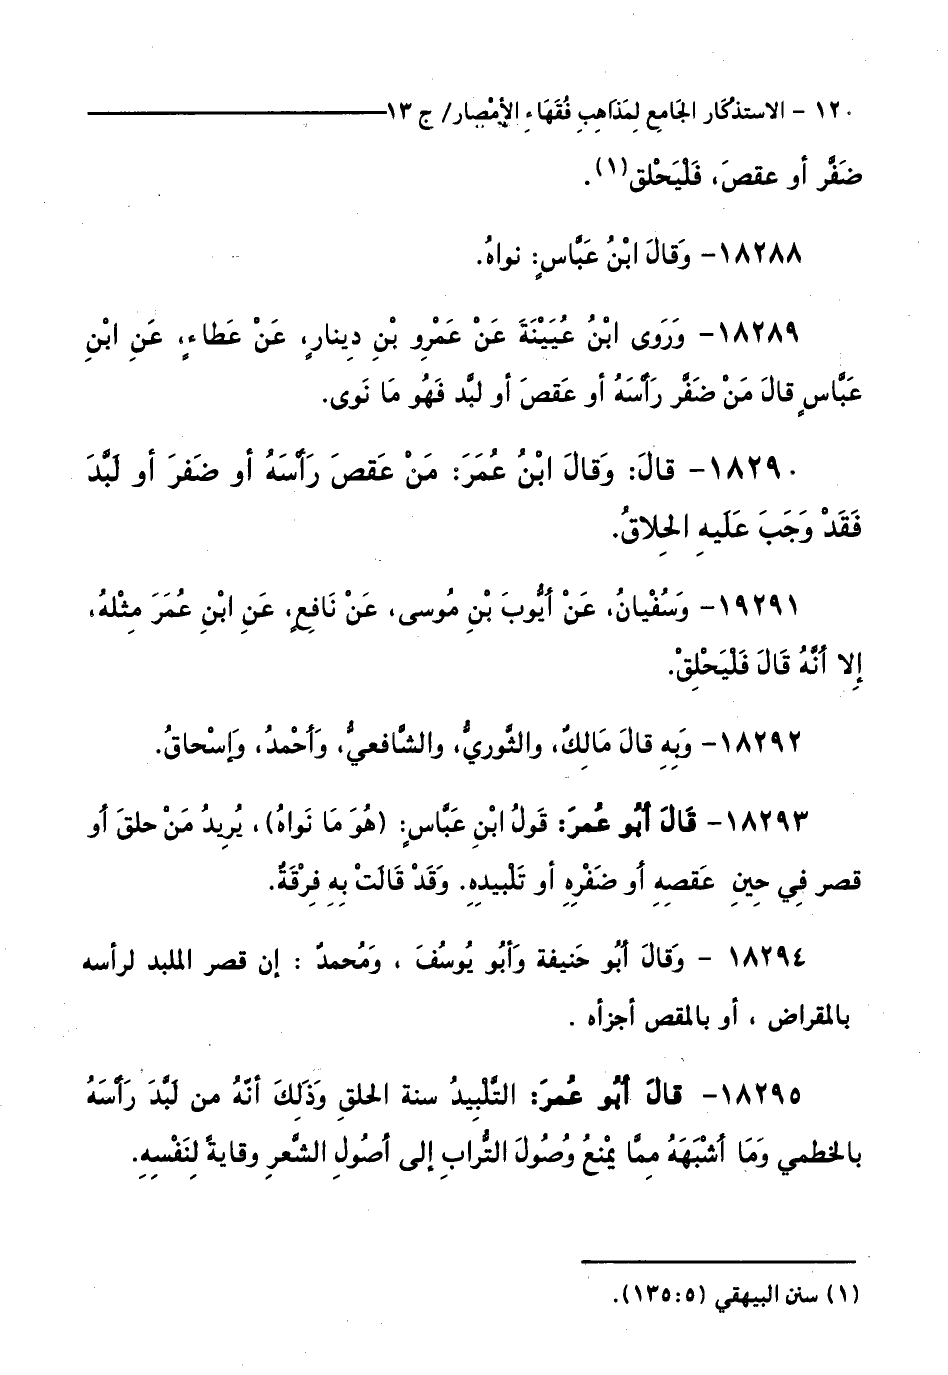 ١٢٠ - الاستذكَار الجَامع لِمَذاهِبِ فُقَهَاءِ الأمْصار/ ج ١٣
ضفَّر أو عقصَ، فَلْيَحْلق(١).
١٨٢٨٨- وَقالَ ابْنُ عَبَّاسٍ: نواهُ.
١٨٢٨٩- وَرَوى ابْنُ عُيَيْنَةَ عَنْ عَمْرِو بْنِ دِينارٍ، عَنْ عَطاءٍ، عَنِ ابْنِ
عَبَّاسٍ قالَ مَنْ ضفَّر رَأسَهُ أو عَقصَ أو لبَّد فَهُو مَا نَوى.
١٨٢٩٠- قالَ: وَقالَ ابْنُ عُمَرَ: مَنْ عَقصَ رَأسَهُ أو ضفَرَ أو لَبَّدَ
فَقَدْ وَجَبَ عَلَيهِ الحِلاقُ.
١٩٢٩١- وَسُفْيانُ، عَنْ أيُّوبَ بْنِ مُوسى، عَنْ نَافعٍ، عَنِ ابْنِ عُمَرَ مِثْلهُ،
إِلا أنَّهُ قَالَ فَلْيَحْلِقْ.
١٨٢٩٢- وَبِهِ قالَ مَالِكٌ، والثَّوريُّ، والشَّافعيُّ، وَأحْمدُ، وَإسْحاقُ.
١٨٢٩٣- قَالَ أبُو عُمرَ: قَولُ ابْنِ عَبَّاسٍ: (هُوَ مَا نَواهُ)، يُرِيدُ مَنْ حلقَ أو
قصر فِي حِينِ عَقصِهِ أو ضفْرِهِ أو تَلْبيدِهِ. وَقَدْ قَالَتْ بِهِ فِرْقَةٌ.
١٨٢٩٤ - وَقالَ أبُو حَنيفة وَأبُو يُوسُفَ ، وَمُحمدٌ : إن قصر الملبد لرأسه
بالمقراض ، أو بالمقص أجزأه .
١٨٢٩٥- قالَ أبُو عُمرَ: التَّلْبيدُ سنة الحلقِ وَذَلكَ أنّهُ من لَبَّدَ رَأسَهُ
بالخطمي وَمَا أشْبَهَهُ مِمَّا يمْنعُ وُصُولَ التُّرابِ إلى أصُولِ الشَّعرِ وقايةً لِنَفْسِهِ.
(١) سنن البيهقي (٥:١٣٥).